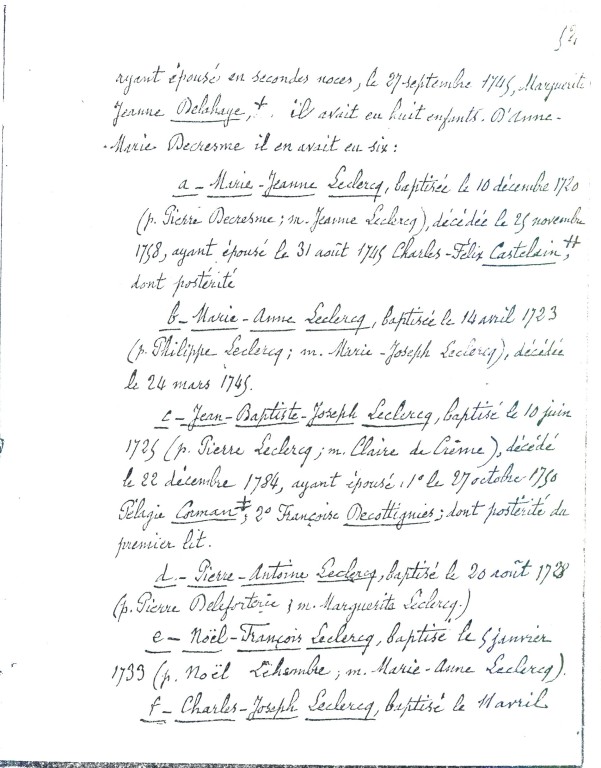 52
ayant épousé en secondes noces, le 27 septembre 1745, Marguerite
Jeanne Delahaye,+. il avait eu huit enfants. D'Anne-
Marie Decresme il en avait eu six :
a - Marie-Jeanne Leclercq, baptisée le 10 décembre 1720
(p. Pierre Decresme ; m. Jeanne Leclercq), décédée le 25 novembre
1758, ayant épousé le 31 août 1745 Charles-Félix Castelain,++
dont postérité
b - Marie-Anne Leclercq, baptisée le 14 avril 1723
(p. Philippe Leclercq ; m. Marie-Joseph Leclercq), décédée
le 24 mars 1745.
c - Jean-Baptiste-Joseph Leclercq, baptisé le 10 juin
1725 (p. Pierre Leclercq ; m. Claire de Crême), décédé
le 22 décembre 1784, ayant épousé : 1° le 27 octobre 1750
Pélagie Corman‡, 2° Françoise Decottignies ; dont postérité du
premier lit.
d. - Pierre-Antoine Leclercq, baptisé le 20 août 1728
(p. Pierre Deleforterie ; m. Marguerite Leclercq.)
e - Noël-François Leclercq, baptisé le 5 janvier
1733 (p. Noël Lehembre ; m. Marie-Anne Leclercq).
f - Charles-Joseph Leclercq, baptisé le 11 avril